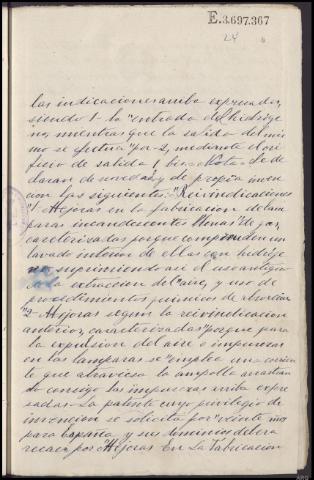 E.3.697.367
24
las indicaciones arriba expresadas,
siendo 1- la "entrada del hidróge
no, mientras que la salida del mis
mo se efectua "por-2, mediante el ori
ficio de salida
claran de novedad y de propia inven
cion las siguientes: "Reivindicaciones
"1- Mejoras en la fabricacion de lám
paras incandescentes llenas "de gas,
caracterizadas porque comprenden un
lavado interior de ellas con hidróge
no, suprimiendo así el uso antiguo
la extraccion del "aire, y uso de
procedimientos quimicos de absorcion
"2- Mejoras segun la reivindicacion
anterior, caracterizadas "porque para
la expulsion del aire e impurezas
en las lamparas se "emplea una corrien
te que atraviesa la ampolla arrastran
do consigo las impurezas arriba expre
sadas- La patente cuyo privilegio de
invencion se solicita por "veinte años
para España y sus dominios debera
recaer por: Mejoras En La Fabricacion